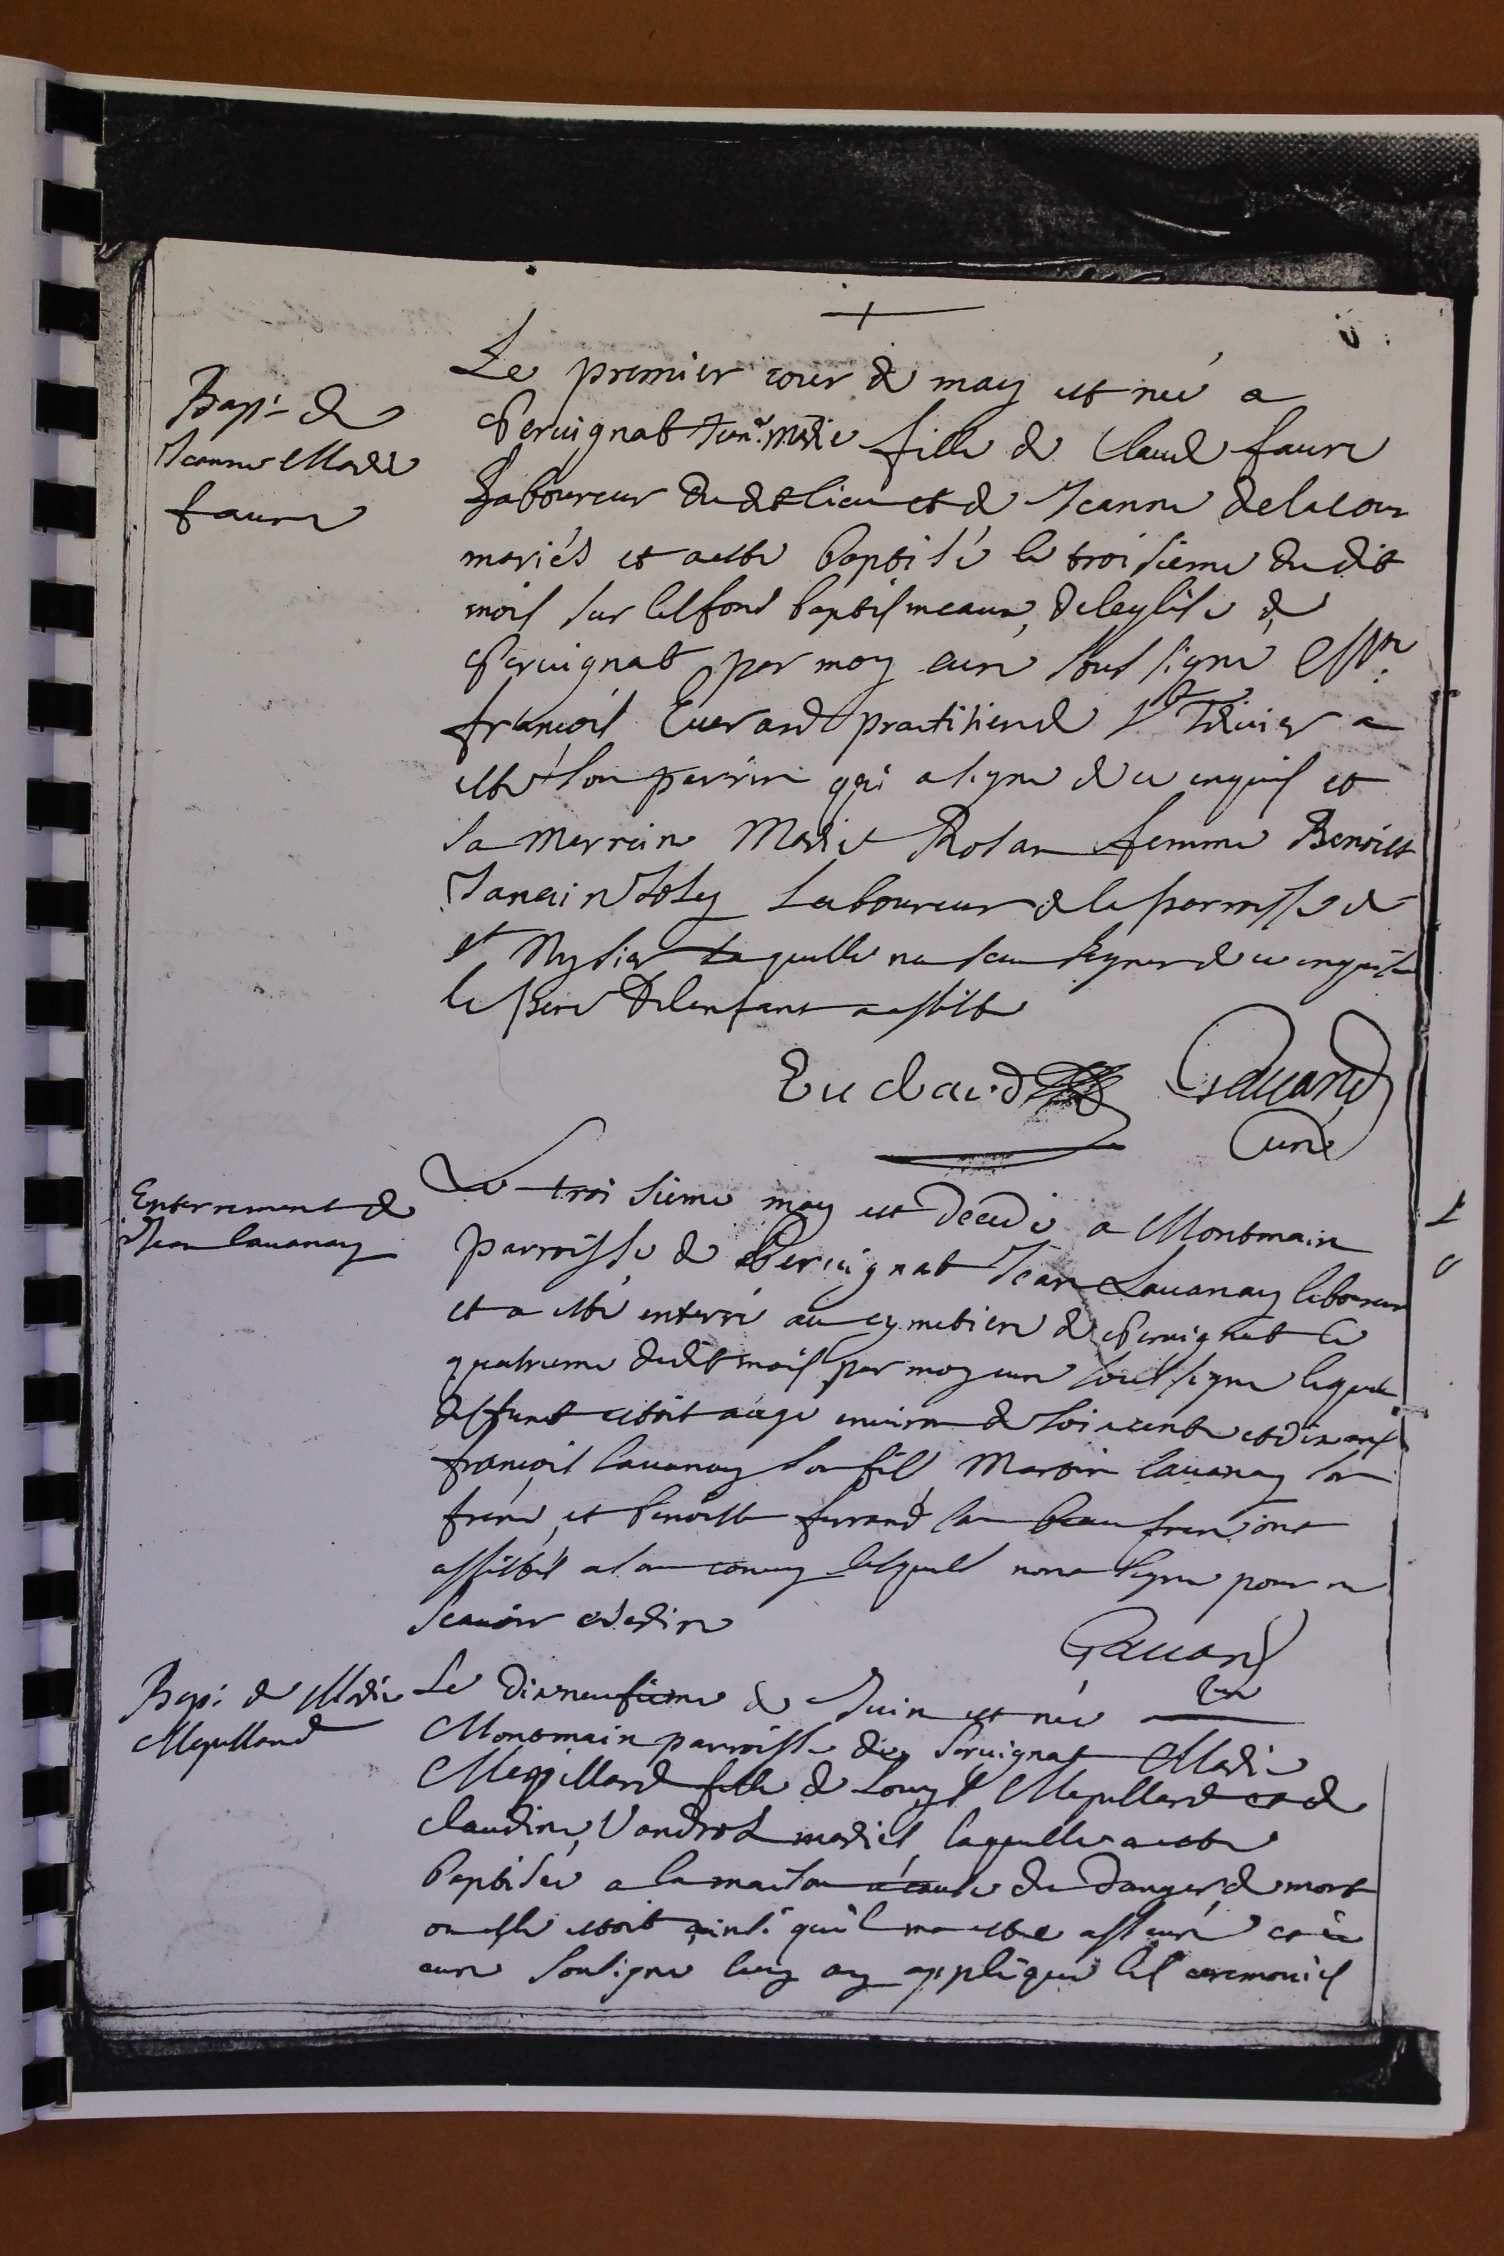 Bapt: de
Jeanne Marie
faure
Le premier iour de may est née a
Peruignat Jeane. Marie fille de Claude faure
Laboureur dudt lieu et de Jeanne delacour
mariés et a esté baptisée le troisieme dudit
mois sur les fons baptismeaux, de leglise de
Peruignat par moy curé sous signé
françois Euerard practitien de St Triuier a
esté son parrin qui a signé de ce enquis et
la marraine Marie femme Benoist
laboureur de la parroisse de
St Nysier laquelle na sceu signer de ce enquise
le Pere delenfant a assisté
Gauand
Curé
Enterrement de
Jean lauanay
Le troisieme may est decedé a Montmain
parroisse de Peruignat Jean Lauanay laboureur
et a esté enterré au cymetiere de Peruignat le
quatrieme dudit mois par moy curé sous signé lequel
deffunct estoit aagé enuiron de soixcente et dix ans
françois lauanay son fils Martin lauanay son
frere, et benoist ferrand son beau frere ont
assistés a son conuoy lesquels nont signé pour ne
scauoir
Gauand
curé
Bapt: de Marie
Mepillard
Le dixneufieme de Juin est née
Montmain parroisse de Peruignat Marie
Mepillard fille de Louys Mepillard et de
claudine Vandrot mariés, laquelle a esté
baptisée a la maison a cause du danger de mort
ou elle estoit ainsi quil ma esté asseuré et ie
curé soubsigné luy ay appliqué les ceremonies